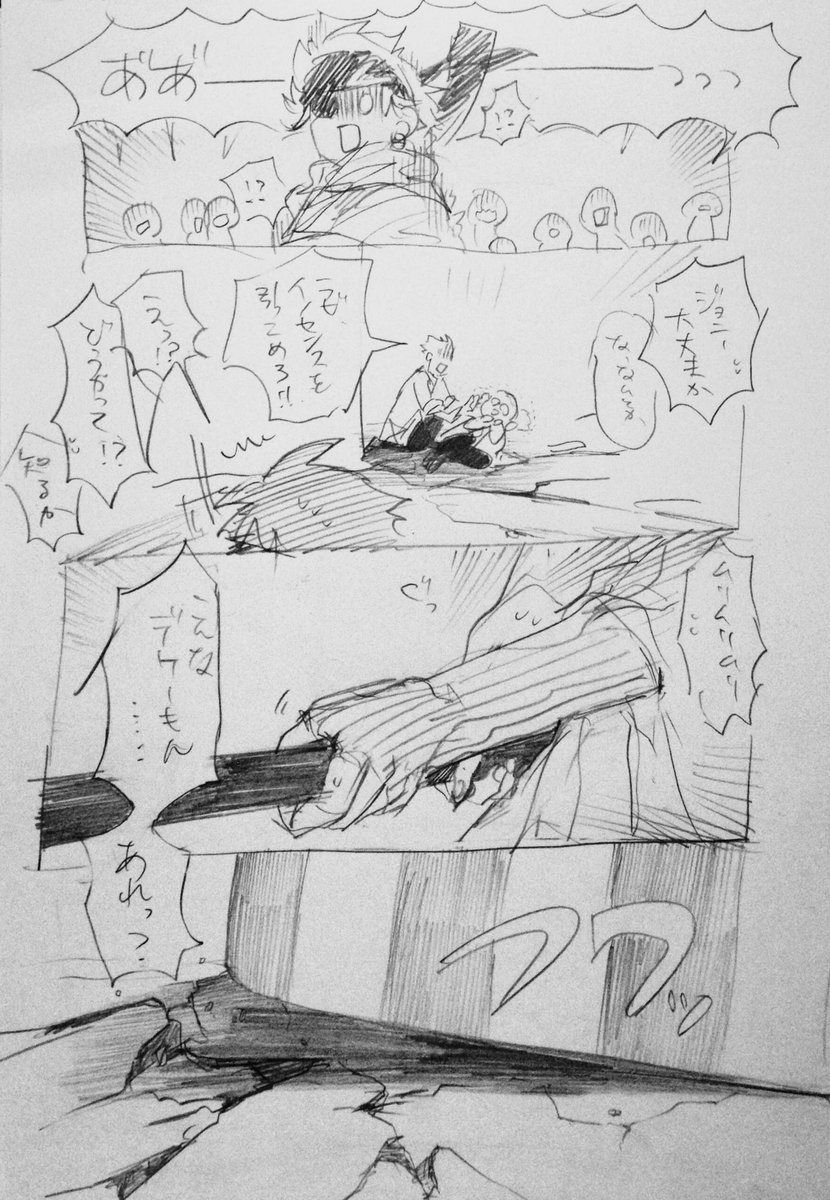 あ゛あ゛ーーっっっ
!?
!?
ジョニー
大丈夫か
ラビ、
イノセンスを
引っこめろ!!
えっ!?
どうやって!?
知るか
ムリムリムリムリ
ぐっ
こんな
デケーもん
……
あれっ？
フワッ